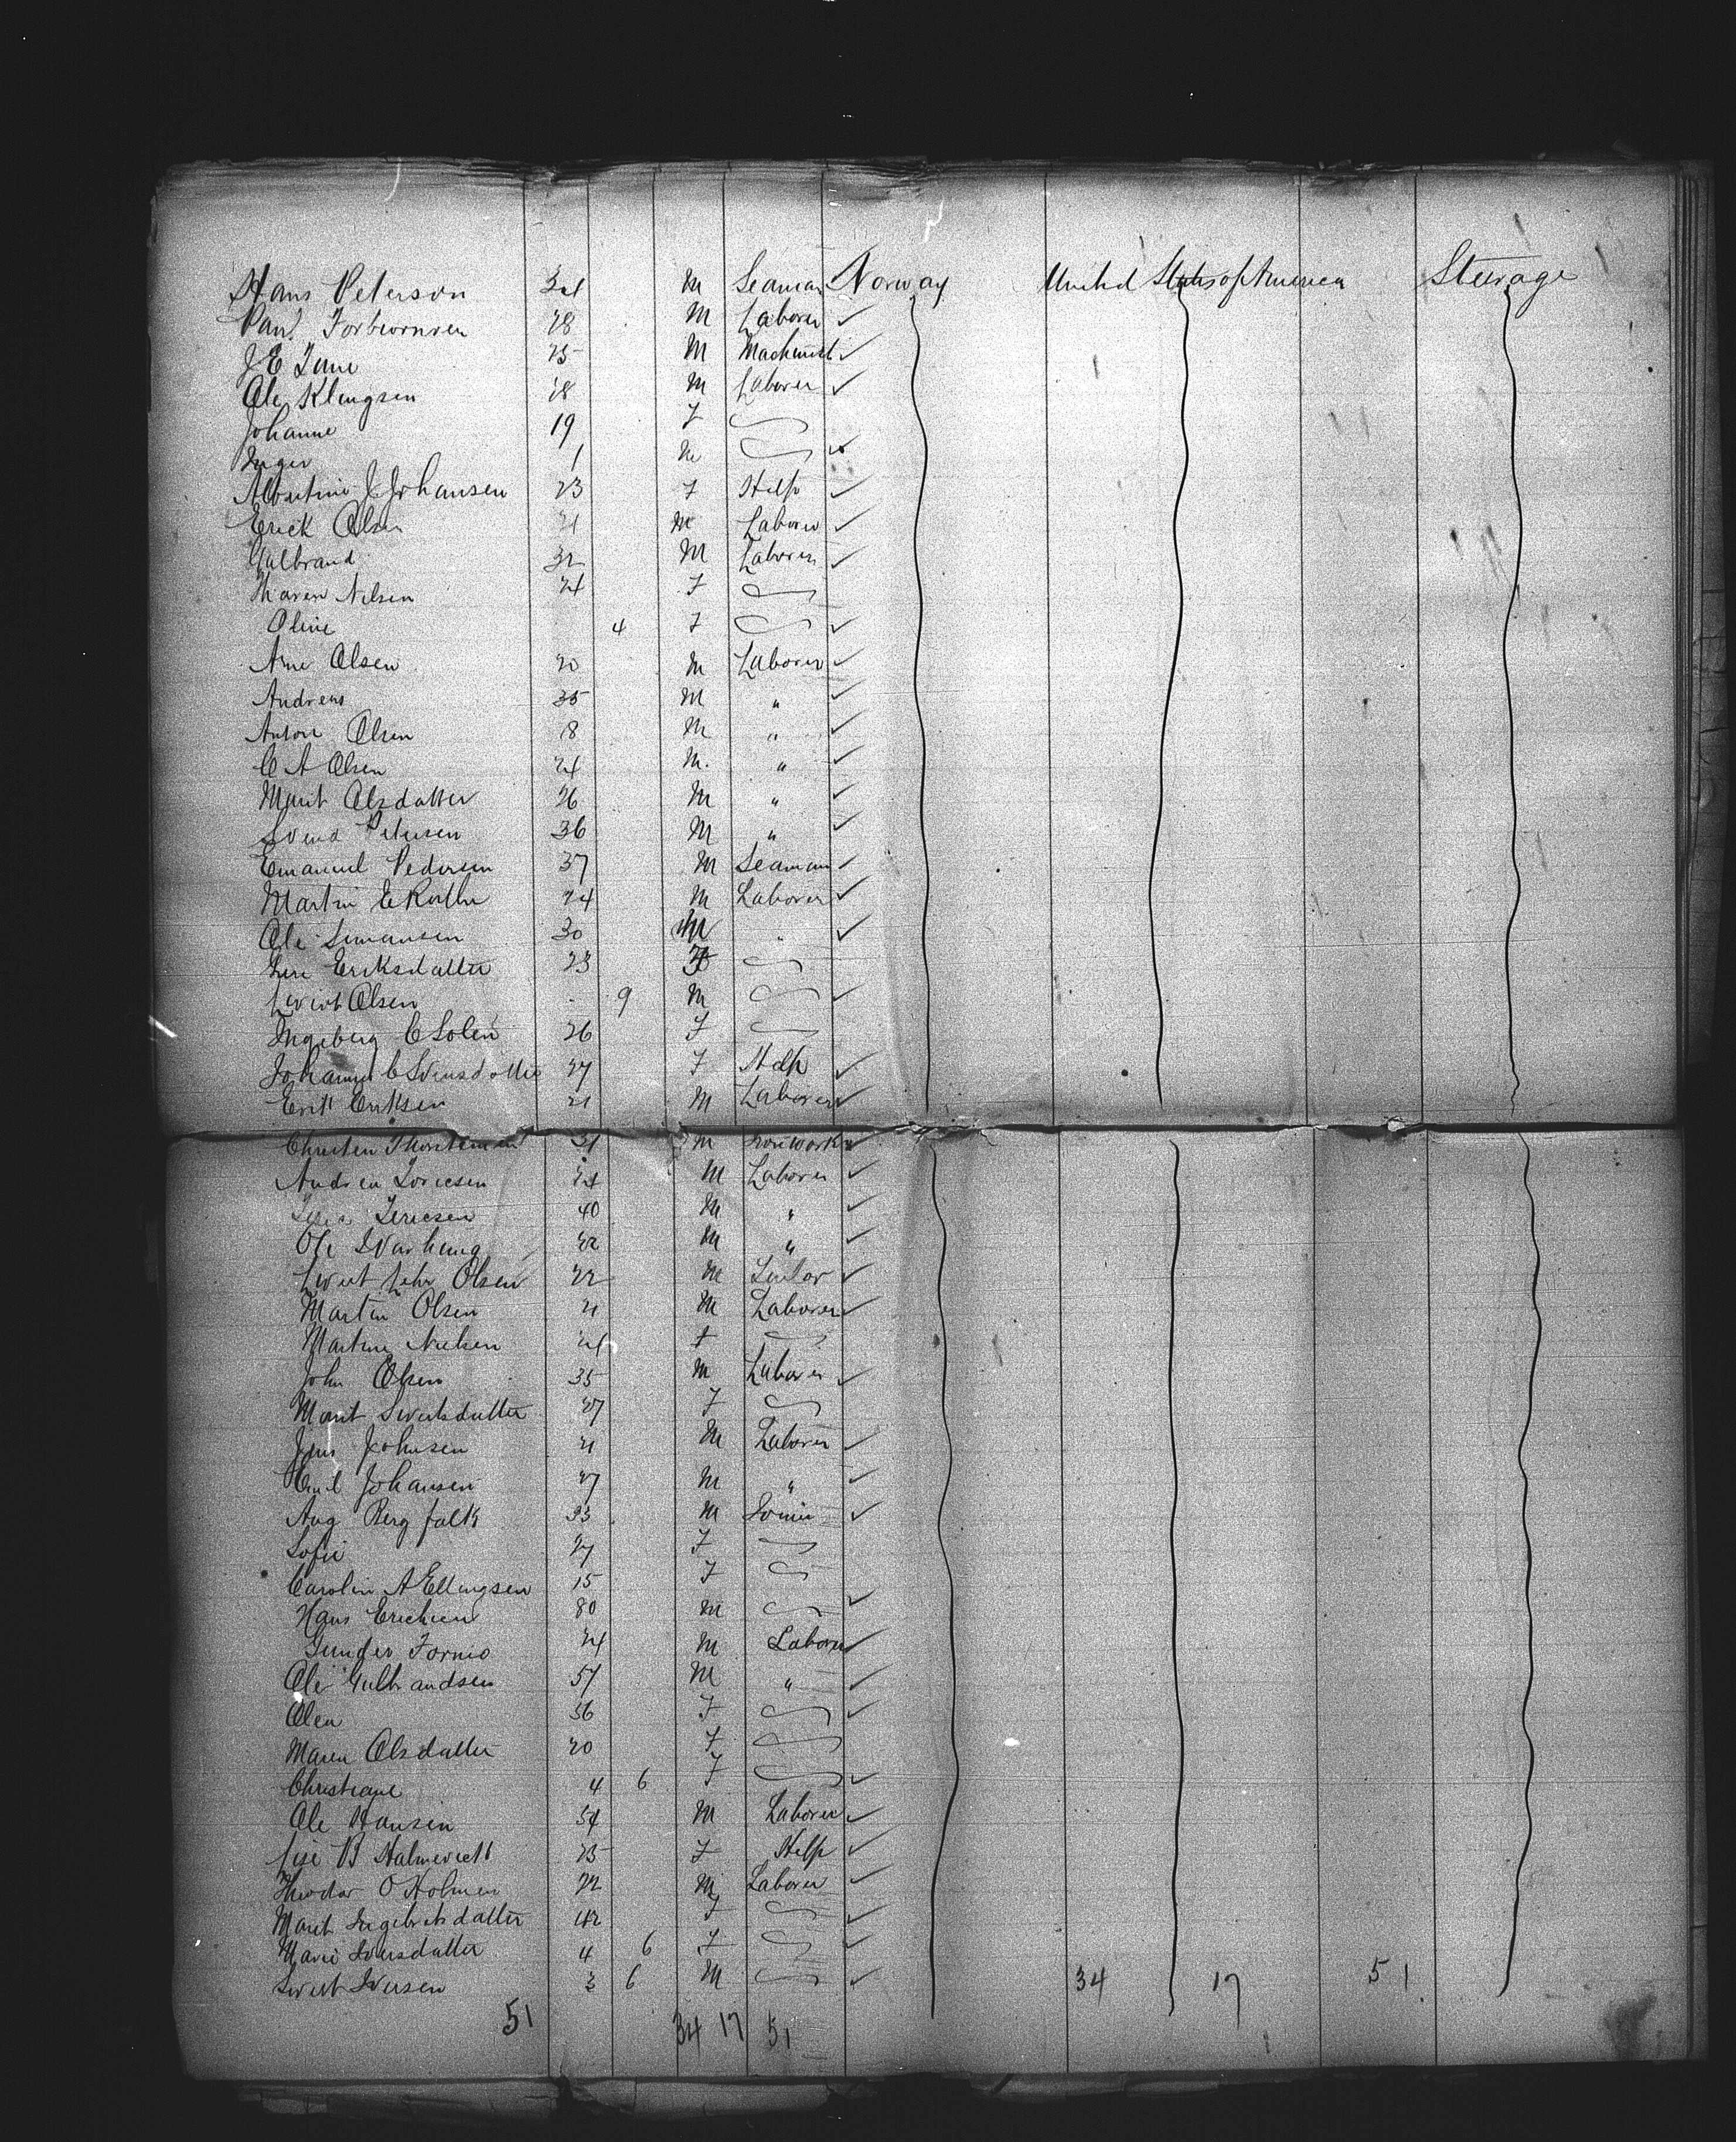 Hans Peterson 34 M Seaman Norway United States of America Steerage
Paul Torbiornsen 28 M Laborer ✓
J E 25 M Machinist ✓
Ole Klingsen 28 M Laborer ✓
Johanne 19 F
Inger 1 M ✓
J Johansen 23 F Help ✓
Erick Olsen 21 M Laborer ✓
Gulbrand 32 M Laborer ✓
Maren Nilsen 24 F
Oline 4 F ✓
Arne Olsen 20 M Laborer ✓
Andreas 35 M " ✓
Anton Olsen 18 M " ✓
C A Olsen 24 M. " ✓
Marit Olsdatter 26 M " ✓
Svend Petersen 36 M " ✓
Emanuel Pedersen 37 M Seaman ✓
Martin E 24 M Laborer ✓
Ole Simonsen 30 M " ✓
Eriksdatter 23 F
Olsen 9 M ✓
Ingeberg C Solen 26 F
Johanne C Svensdatter 27 F Help ✓
Erik Eriksen 21 M Laborer ✓
Christen 31 M Ironwork ✓
Andrea 24 M Laborer ✓
40 M " ✓
Ole 42 M " ✓
Olsen 22 M ✓
Martin Olsen 21 M Laborer ✓
Martine Nielsen 24 F
John Olsen 35 M Laborer ✓
Marit Sivertsdatter 27 F
Jens Johnsen 21 M Laborer ✓
Emil Johansen 27 M " ✓
Aug Bergfalk 33 M ✓
Sofie 27 F
Carolin A Ellingsen 15 F
Hans Erichsen 80 M ✓
Gunder Fornio 24 M Laborer ✓
Ole Gulbrandsen 57 M " ✓
Olea 56 F ✓
Maren Olsdatter 20 F
Christiane 4 6 F ✓
Ole Hansen 54 M Laborer ✓
B 25 F Help ✓
Theodor O Holmen 22 M Laborer ✓
Marit Ingebritsdatter 42 F ✓
Marie Iversdatter 4 6 F ✓
Sivert Iversen 3 6 M ✓ 34 17 51
51 34 17 51